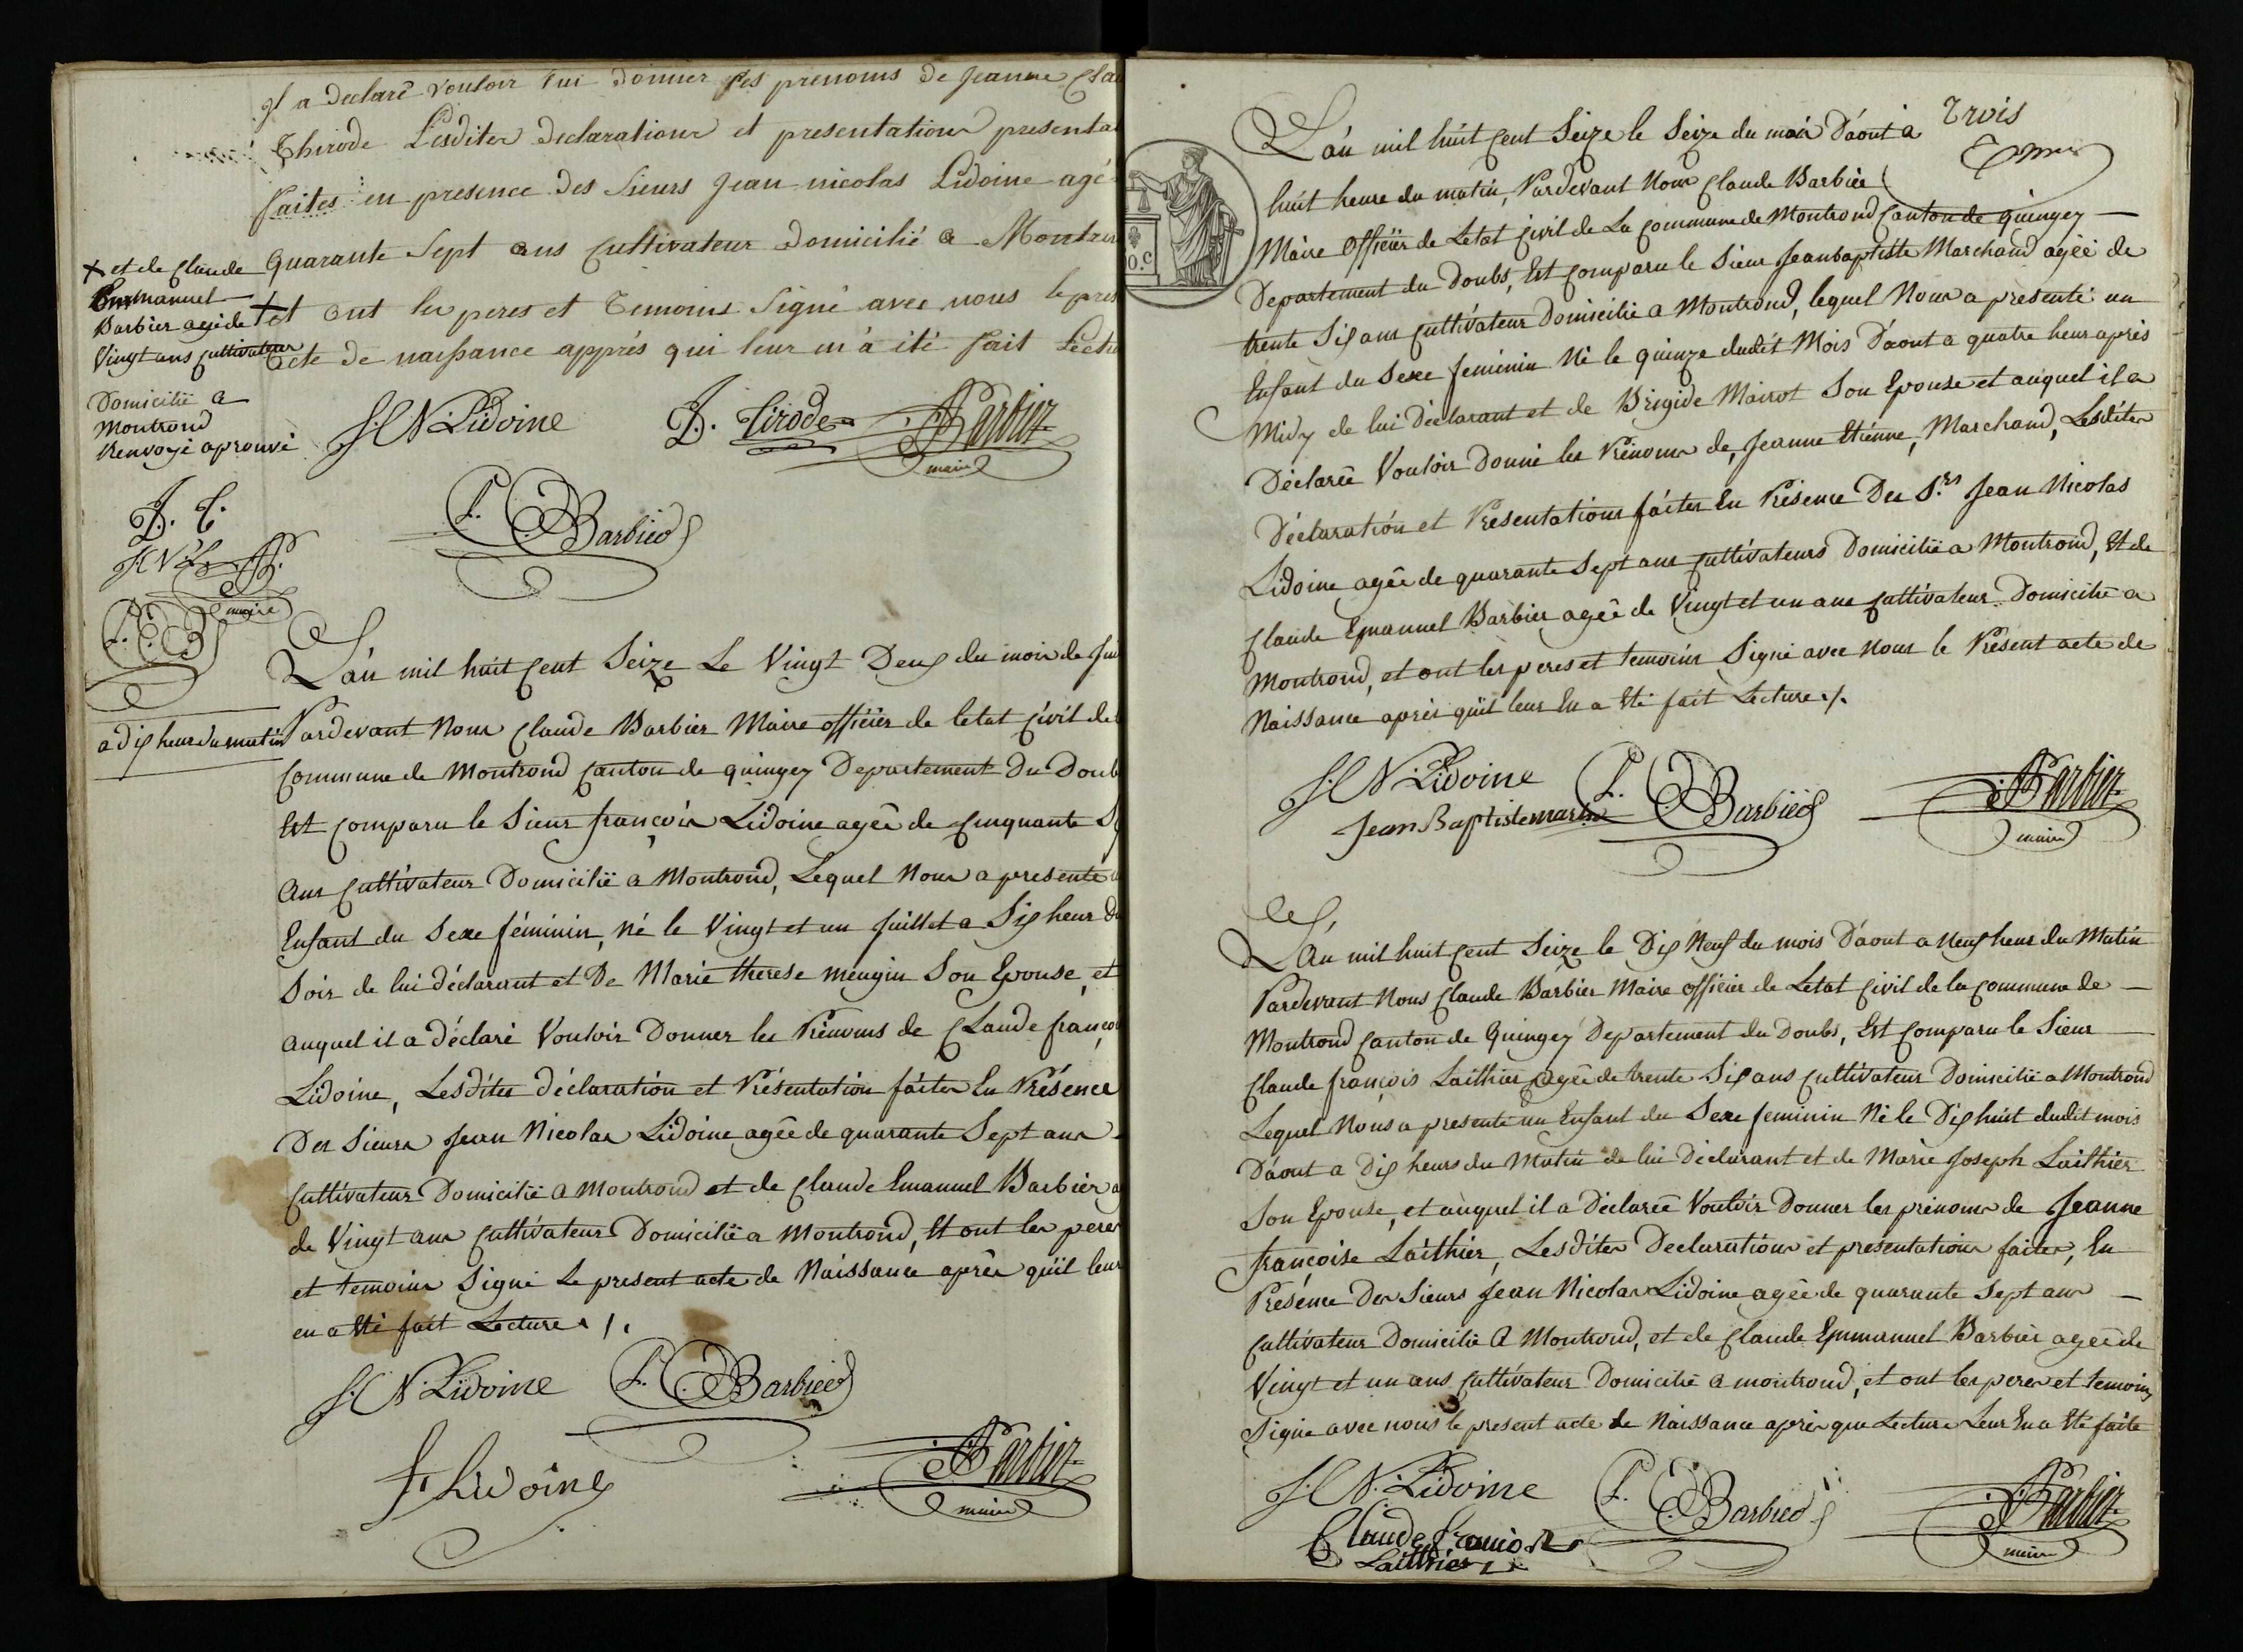 il a declarê vouloir lui donner les prenoms de jeanne Cla
Thirode Lesdites declarations et presentations presenta
faites en presence des sieurs jean nicolas Lidoine agé
quarante Sept ans Cultivateur domicilié a Montron
+ et ont les peres et temoins signé avec nous le pres
acte de naissance apprés qui leur in á été fait Lectu
+ et de Claude
Emmanuel
Barbier agé de
Vingt ans cultivateur
Domicilié a
Montrond
Renvoyé aprouvé
J. N. Lidoine J. Tirode Barbier
maire
C. E. Barbier
J. T.
J. N. L. B.
maire
C. E. B
L'án mil huit Cent Seize Le Vingt Deux du mois de Jui
a dix heur du matin Pardevant Nous Claude Barbier Maire officiér de letat Civil de l
Commune de Montrond Canton de quingey Departement Du Doub
Est Comparu le Sieur françois Lidoine ageê de Cinquante S
Ans Cultivateur Domicilié a Montrond, Lequel Nous a presenté
Enfant du Sexe féminin, né le Vingt et un Juillet a Six heur du
Soir de lui déclarant et De Marie therese mengin Son Epouse, et
auquel il a déclaré Vouloir Donner les Prénoms de CLaude françoi
Lidoine, Lesdites déclaration et Présentation faites En Présence
Des Sieurs Jean Nicolas Lidoine ageê de quarante Sept ans
Cultivateur Domicilié a Montrond et de Claude Emanuel Barbier a
de Vingt ans Cultivateur Domicilié a Montrond, Et ont les peres
et temoins Signé Le present acte de Naissance aprês qu'il leur
en a Eté fait Lecture ./.
J. N. Lidoine C. E. Barbier
f. Lidoine Barbier
maire
Trois
L'án mil huit Cent Seize le Seize du mois D'aout a
huit heure du matin, Pardevant Nous Claude Barbier
Maire Officiér de Letat Civil de La Commune de Montrond Canton de quingey
Departement du Doubs, Est Comparu le Sieur Jeanbaptiste Marchand ageé de
trente Six ans Cultivateur Domicilié a Montrond, lequel Nous a presenté un
Enfant du Sexe feminin Né le quinze dudit Mois D'aout a quatre heur après
Midy de lui Déclarant et de Brigide Mairot Son Epouse et auquel il a
Déclareê Vouloir Donné les Prénoms de, Jeanne Etiénne, Marchand, Lesdites
Déclaratión et Presentations faites En Présence Des S.rs Jean Nicolas
Lidoine ageê de quarante Sept ans Cultivateurs Domicilié a Montrond, Et de
Claude Emanuel Barbier ageê de Vingt et un ans Cultivateur Domicilié a
Montrond, et ont les peres et temoins Signé avec Nous le Présent acte de
Naissance après qu'il leur En a Eté fait Lecture ./.
J. N. Lidoine C. E. Barbier Barbier
Jean Baptiste marchand maire
L'An mil huit Cent Seize le Dix Neuf du mois D'aout a Neuf heur du Matin
Pardevant Nous Claude Barbier Maire officier de Letat Civil de la Commune de
Montrond Canton de Quingey Departement du Doubs, Est Comparu le Sieur
Claude françois Laithier ageê de trente Six ans Cultivateur Domicilié a Montrond
Lequel Nous a presenté un Enfant du Sexe feminin Né le Dix huit dudit mois
D'aout a Dix heurs du Matin de lui Déclarant et de Marie Joseph Laithier
Son Epouse, et auquel il a Déclareê Vouloir Donner les prénoms de Jeanne
françoise Laithier, Lesdites Declarations et presentations faites, En
Présence Des Sieurs Jean Nicolas Lidoine ageê de quarante Sept ans
Cultivateur Domicilié A Montrond, et de Claude Emmanuel Barbier ageê de
Vingt et un ans Cultivateur Domicilié a montrond, et ont les peres et temoins
Signé avec nous le present acte de Naissance après que Lecture Leur En a Eté faite
J. N. Lidoine C. E. Barbier Barbier
Claude francois maire
Laithier